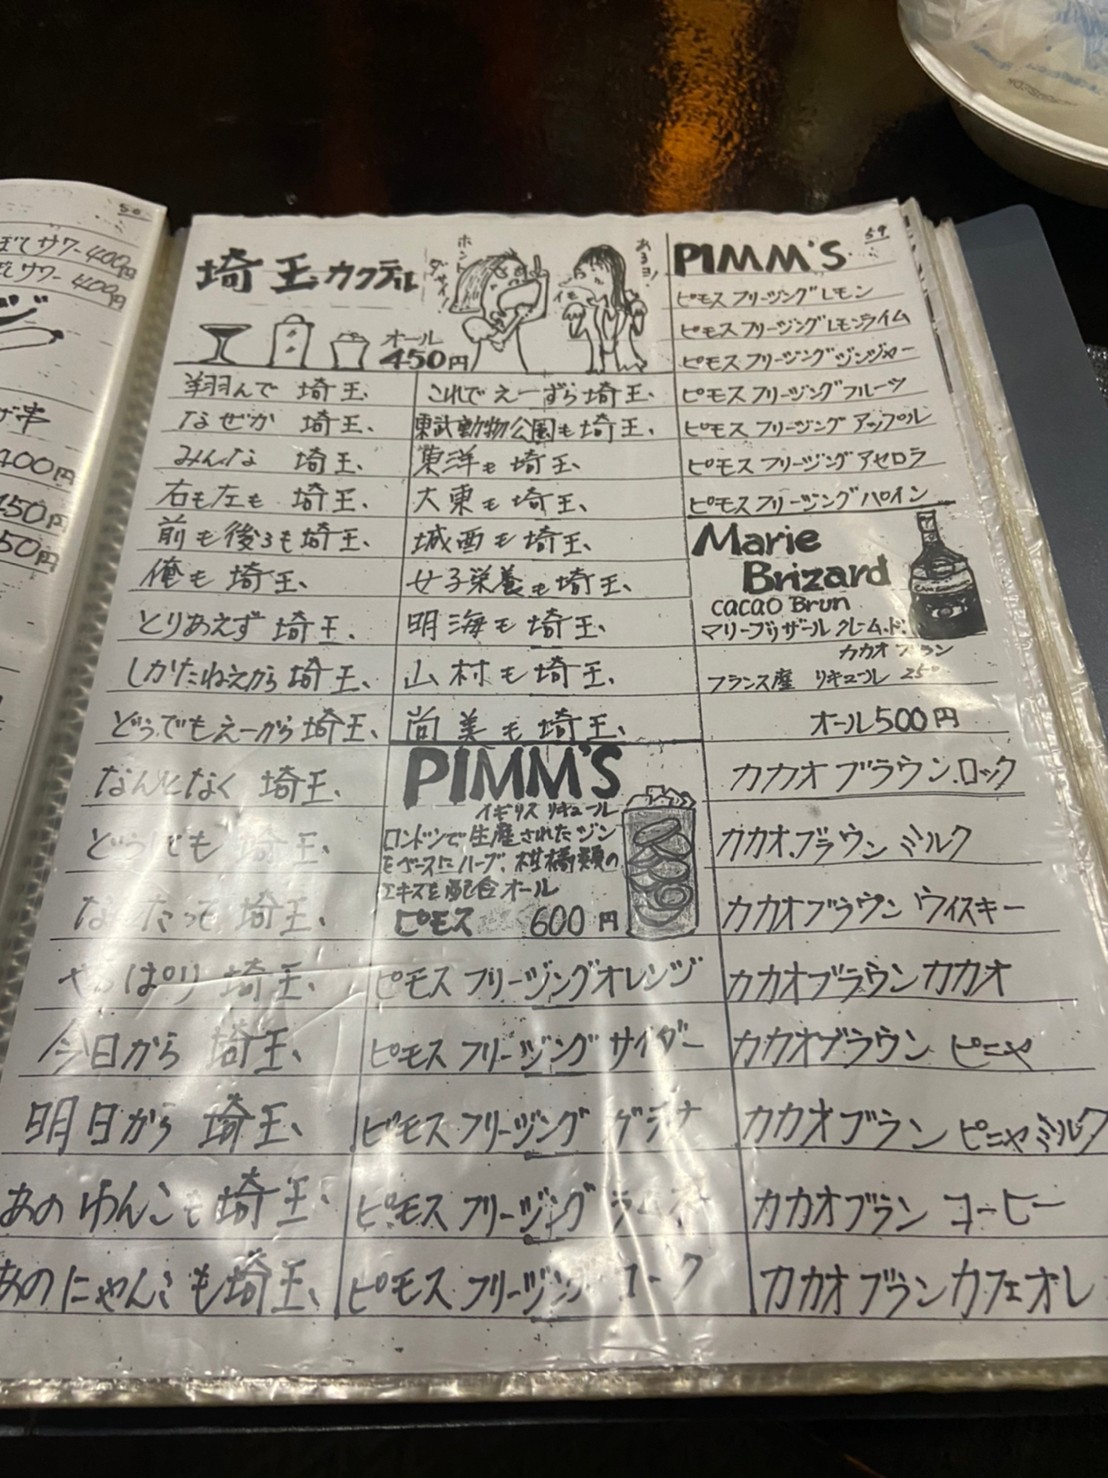 50
サワー 400円
サワー 400円
串
400円
450円
50円
59
埼玉カクテル
ホント
ダサイ
イモ
あるヨ!
オール
450円
翔んで 埼玉、
なぜか 埼玉、
みんな 埼玉、
右も左も 埼玉、
前も後ろも 埼玉、
俺も 埼玉、
とりあえず 埼玉、
しかたねえから 埼玉、
どうでもえーから 埼玉、
なんとなく 埼玉、
どうしても 埼玉、
なんたって 埼玉、
やっぱり 埼玉、
今日から 埼玉、
明日から 埼玉、
あの わんこも 埼玉、
あの にゃんこも 埼玉、
これで えーずら 埼玉、
東武動物公園も 埼玉、
東洋も 埼玉、
大東も 埼玉、
城西も 埼玉、
女子栄養も 埼玉、
明海も 埼玉、
山村も 埼玉、
尚美も 埼玉、
PIMM'S
イギリス リキュール
ロンドンで生産されたジン
をベースにハーブ、柑橘類の
エキスを配合 オール
ピモス 600円
ピモス フリージングオレンジ
ピモス フリージング サイダー
ピモス フリージング
ピモス フリージング
ピモス フリージング コーク
PIMM'S
ピモス フリージング レモン
ピモス フリージング レモンライム
ピモス フリージング ジンジャー
ピモス フリージング フルーツ
ピモス フリージング アップル
ピモス フリージング アセロラ
ピモス フリージング パイン
Marie
Brizard
cacao Brun
マリーブリザール クレーム.ド.
カカオ ブラン
フランス産 リキュール 25°
オール500円
カカオ ブラウン.ロック
カカオ.ブラウン ミルク
カカオブラウン ウィスキー
カカオブラウン カカオ
カカオブラウン ピニャ
カカオブラン ピニャミルク
カカオブラン コーヒー
カカオブラン カフェオレ